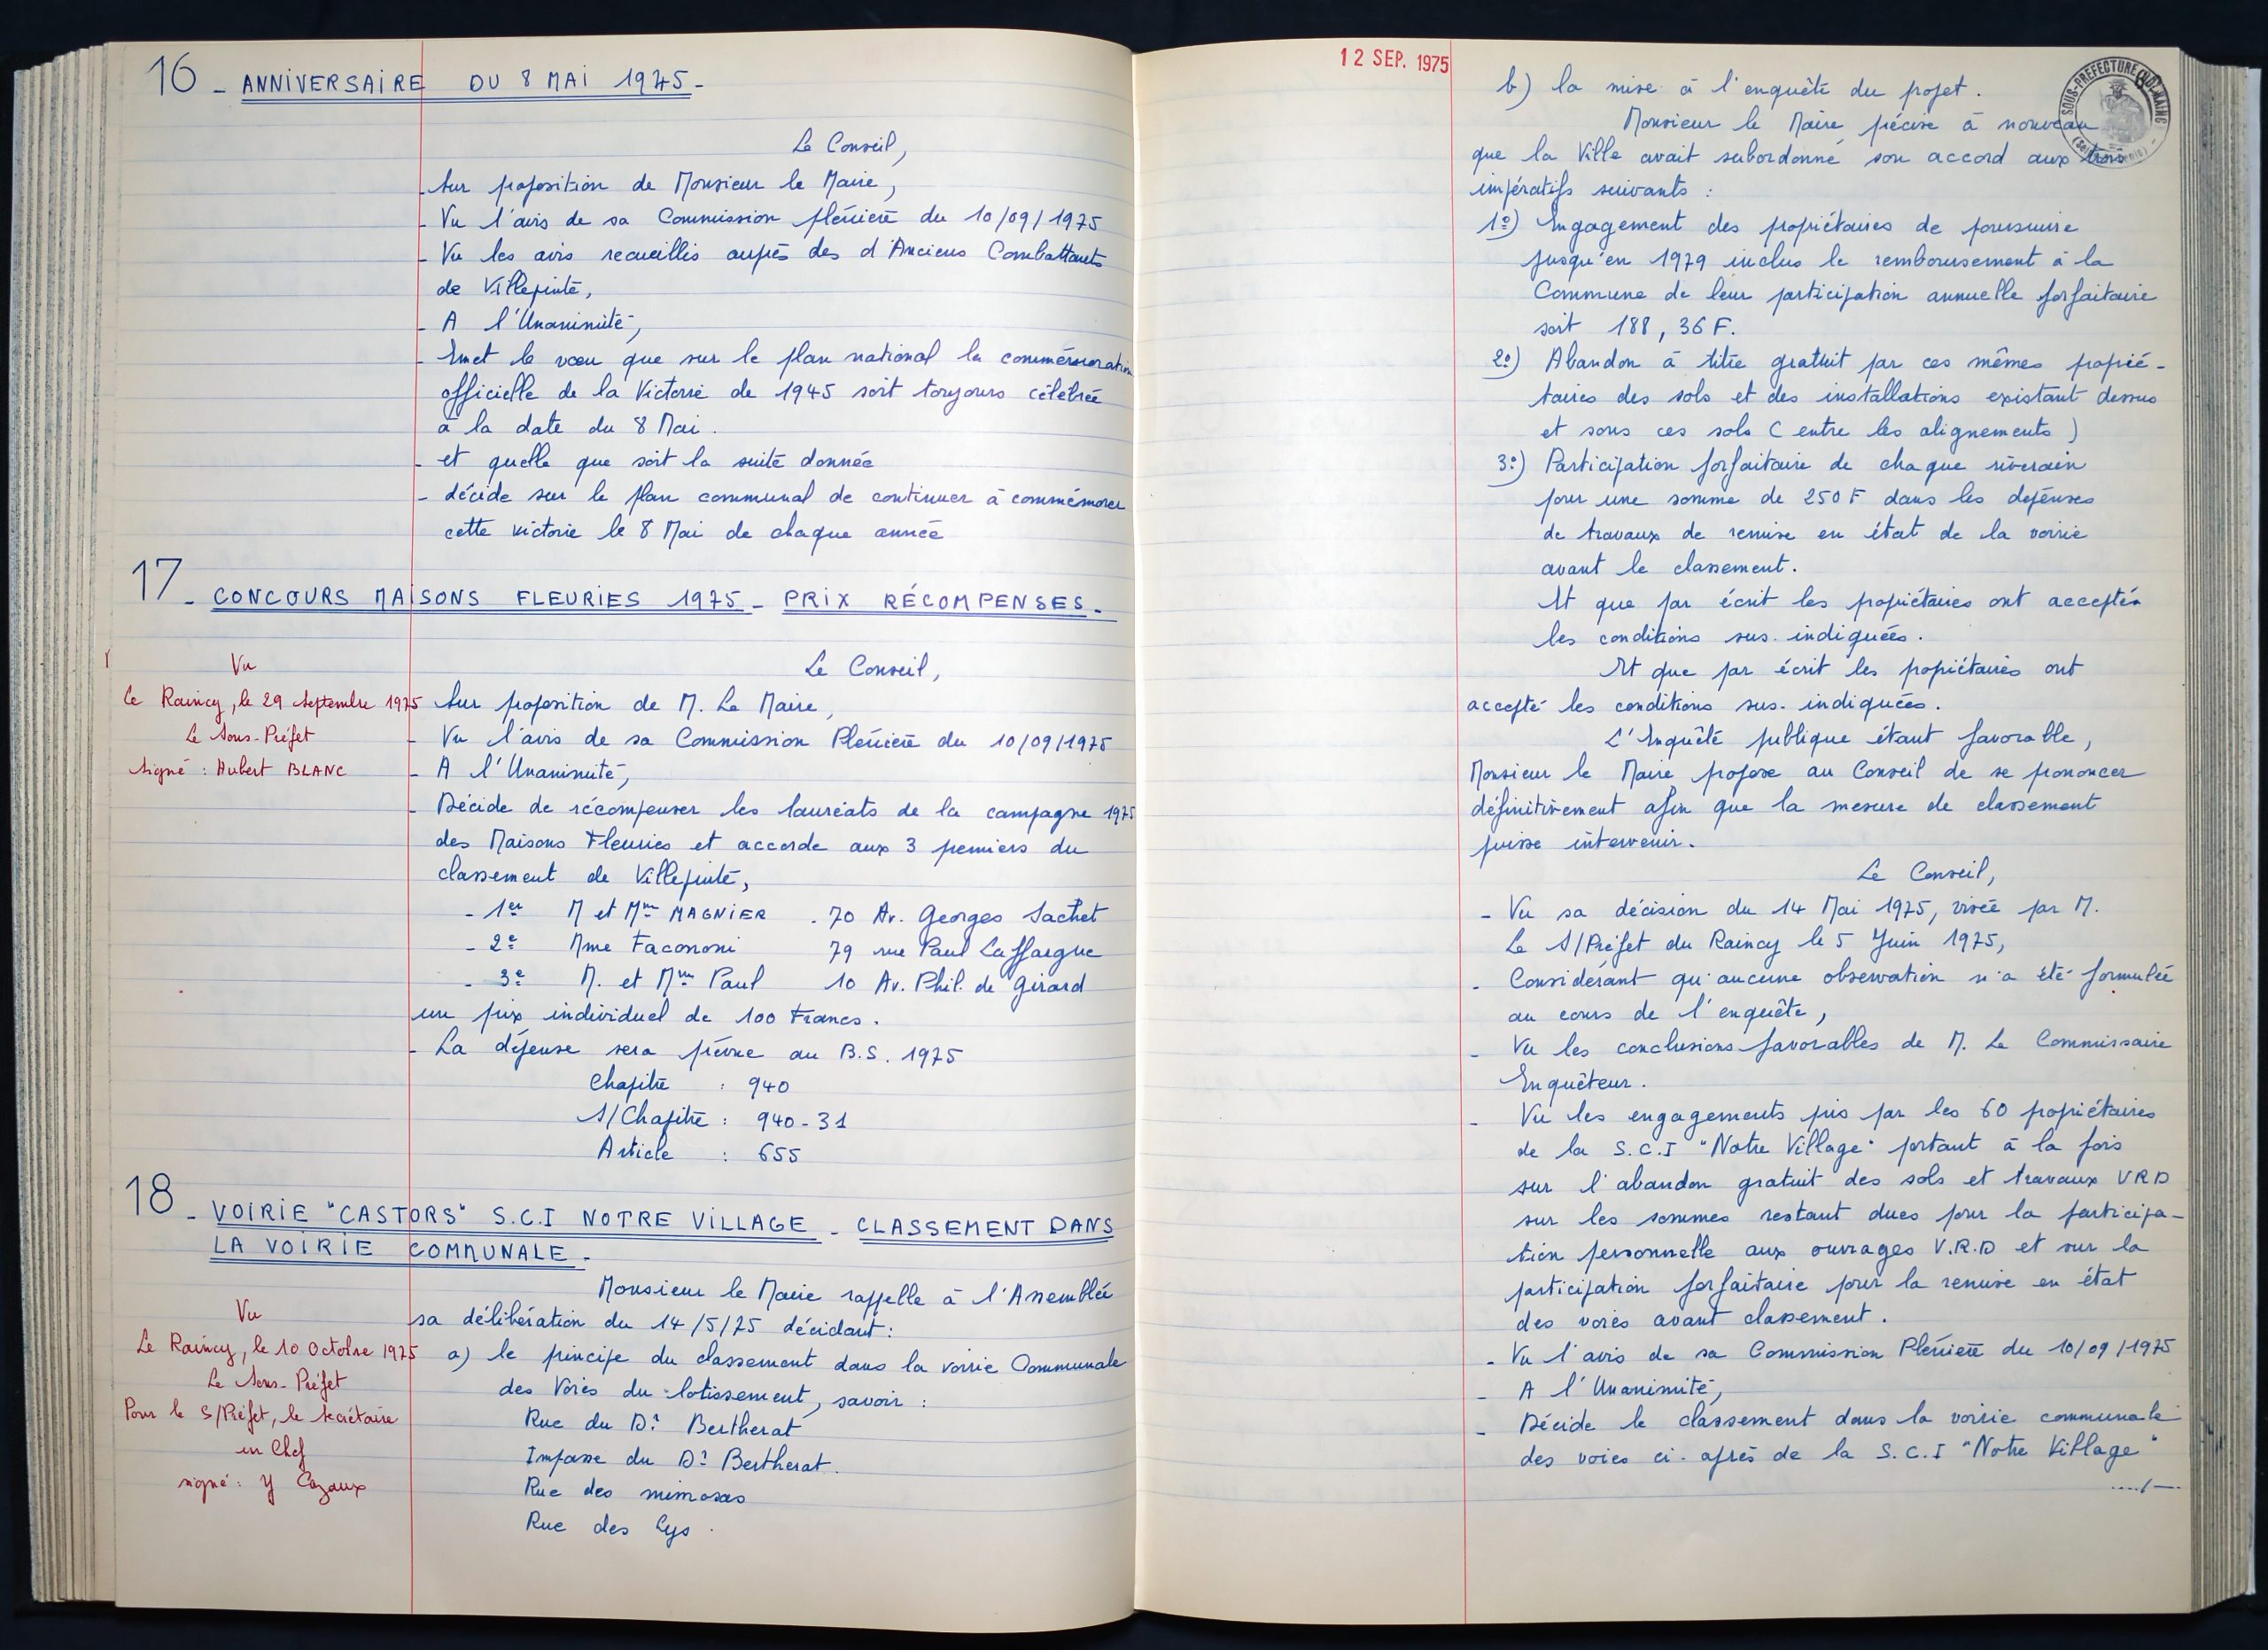 16 - ANNIVERSAIRE DU 8 MAI 1945 -
Le Conseil,
- Sur proposition de Monsieur le Maire,
- Vu l'avis de sa Commission plénière du 10/09/1975
- Vu les avis recueillis auprès des d'Anciens Combattants
de Villepinte,
- A l'Unanimité,
- Emet le vœu que sur le plan national la commémoration
officielle de la Victoire de 1945 soit toujours célébrée
à la date du 8 Mai.
- et quelle que soit la suite donnée
- décide sur le plan communal de continuer à commémorer
cette victoire le 8 Mai de chaque année
17 - CONCOURS MAISONS FLEURIES 1975 - PRIX RÉCOMPENSES -
Le Conseil,
Vu
Le Raincy, le 29 Septembre 1975
Le Sous-Préfet
Signé : Hubert BLANC
Sur proposition de M. Le Maire,
- Vu l'avis de sa Commission Plénière du 10/09/1975
- A l'Unanimité,
- Décide de récompenser les lauréats de la campagne 1975
des Maisons Fleuries et accorde aux 3 premiers du
classement de Villepinte,
- 1er M et Mme MAGNIER - 70 Av. Georges Sachet
- 2e Mme Facononi 79 rue Paul Laffargue
- 3e M. et Mme Paul 10 Av. Phil. de Girard
un prix individuel de 100 Francs.
- La dépense sera prévue au B.S. 1975
Chapitre : 940
S/Chapitre : 940-31
Article : 655
18 - VOIRIE "CASTORS" S.C.I NOTRE VILLAGE - CLASSEMENT DANS
LA VOIRIE COMMUNALE -
Vu
Le Raincy, le 10 Octobre 1975
Le Sous-Préfet
Pour le S/Préfet, le secrétaire
en Chef
signé : Y Cazaux
Monsieur le Maire rappelle à l'Assemblée
sa délibération du 14/5/75 décidant :
a) le principe du classement dans la voirie Communale
des Voies du lotissement, savoir :
Rue du Dr Bertherat
Impasse du Dr Bertherat.
Rue des mimosas
Rue des Lys.
12 SEP. 1975
SOUS-PRÉFECTURE DU RAINCY
b) la mise à l'enquête du projet.
Monsieur le Maire précise à nouveau
que la Ville avait subordonné son accord aux trois
impératifs suivants :
1°) Engagement des propriétaires de poursuivre
jusqu'en 1979 inclus le remboursement à la
Commune de leur participation annuelle forfaitaire
soit 188,36 F.
2°) Abandon à titre gratuit par ces mêmes proprié-
taires des sols et des installations existant dessus
et sous ces sols (entre les alignements)
3°) Participation forfaitaire de chaque riverain
pour une somme de 250 F dans les dépenses
de travaux de remise en état de la voirie
avant le classement.
Et que par écrit les propriétaires ont acceptés
les conditions sus-indiquées.
Et que par écrit les propriétaires ont
accepté les conditions sus-indiquées.
L'Enquête publique étant favorable,
Monsieur le Maire propose au Conseil de se prononcer
définitivement afin que la mesure de classement
puisse intervenir.
Le Conseil,
- Vu sa décision du 14 Mai 1975, visée par M.
Le S/Préfet du Raincy le 5 Juin 1975,
- Considérant qu'aucune observation n'a été formulée
au cours de l'enquête,
- Vu les conclusions favorables de M. Le Commissaire
Enquêteur.
- Vu les engagements pris par les 60 propriétaires
de la S.C.I "Notre Village" portant à la fois
sur l'abandon gratuit des sols et travaux VRD
sur les sommes restant dues pour la participa-
tion personnelle aux ouvrages V.R.D et sur la
participation forfaitaire pour la remise en état
des voies avant classement.
- Vu l'avis de sa Commission Plénière du 10/09/1975
- A l'Unanimité,
- Décide le classement dans la voirie communale
des voies ci-après de la S.C.I "Notre Village"
..../-